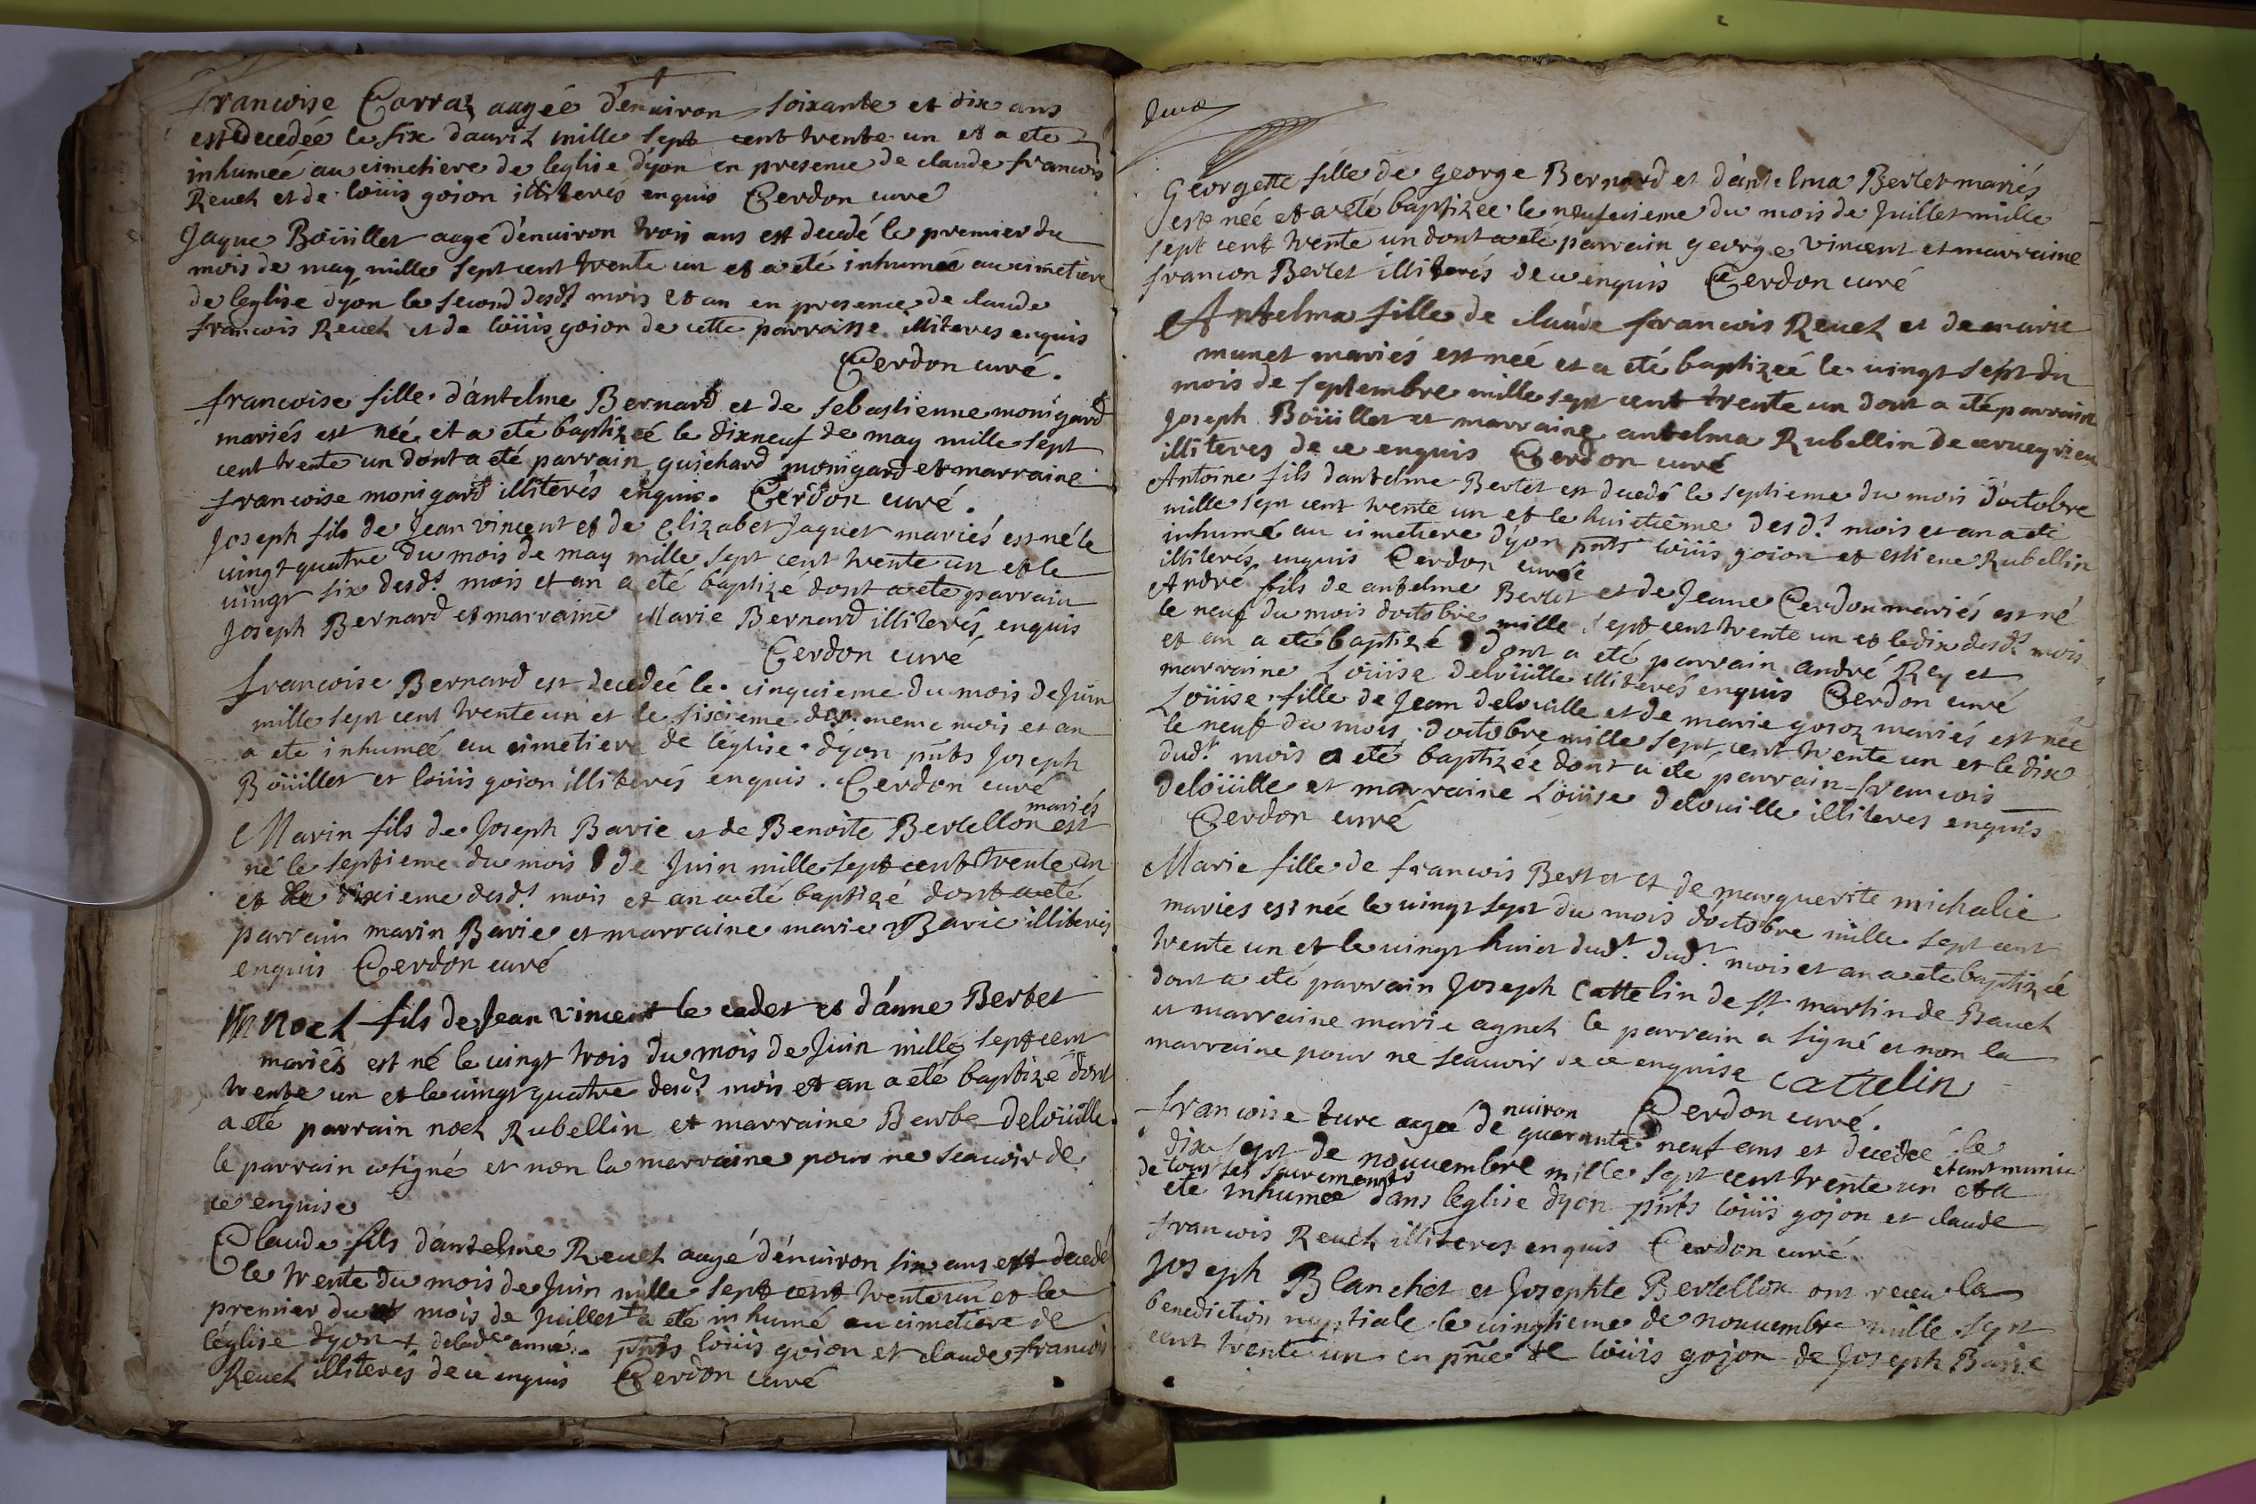 francoise Carraz aagée d'enuiron soixante et dix ans
est decedée le six dauril mille sept cent trente un et a ete
inhumée au cimetiere de leglise dyon en presence de claude francois
Reuel et de loüis goion illiteres enquis Cerdon curé
Jaque Boüillet aagé d'enuiron trois ans est decedé le premier du
mois de may mille sept cent trente un et a eté inhumé au cimetiere
de leglise dyon le second desd.t mois et an en presence de claude
francois Reuel et de loüis goion de cette parroisse illiteres enquis
Cerdon curé.
francoise fille d'antelme Bernard et de sebastienne monigard
mariés est née et a eté baptizeé le dixneuf de may mille sept
cent trente un dont a eté parrain guichard monigard et marraine
francoise monigard illiterés enquis. Cerdon curé.
Joseph fils de Jean vincent et de Elizabet Jaquet mariés est né le
uingt quatre du mois de may mille sept cent trente un et le
uingt six desd.t mois et an a eté baptizé dont a ete parrain
Joseph Bernard et marraine Marie Bernard illiterés enquis
Cerdon curé
francoise Bernard est decedée le cinquieme du mois de Juin
mille sept cent trente un et le sixieme du meme mois et an
a ete inhumeé au cimetiere de l'église dyon pnts Joseph
Boüillet et loüis goion illiterés enquis. Cerdon curé
mariés
Marin fils de Joseph Barie et de Benoite Bertellon est
né le septieme du mois de Juin mille sept cent trente un
et le dixieme desd.t mois et an a eté baptizé dont a eté
parrain marin Barie et marraine marie Barie illiterés
enquis Cerdon curé
noel fils de Jean vincent le cadet et d'anne Bertet
mariés est né le uingt trois du mois de Juin mille sept cent
trente un et le uingt quatre desd.t mois et an a eté baptizé dont
a eté parrain noel Rubellin et marraine Berbe Deloüille.
le parrain a signé et non la marraine pour ne scauoir de
ce enquise
Claude fils d'antelme Reuel aagé d'enuiron six ans est decedé
le trente du mois de Juin mille sept cent trente un et le
premier du mois de Juillet + a eté inhumé au cimetiere de
léglise dyon + delad.e anné. pnts loüis goion et claude francois
Reuel illiteres de ce enquis Cerdon curé
Georgette fille de george Bernard et d'antelma Bertet mariés
est née et a eté baptizee le neufuieme du mois de Juillet mille
sept cent trente un dont a eté parrain george vincent et marraine
francon Bertet illiterés de ce enquis Cerdon curé
Antelma fille de claude francois Reuel et de marie
munet mariés est née et a eté baptizeé le uingt sept du
mois de septembre mille sept cent trente un dont a eté parrain
Joseph Boüillet et marraine antelma Rubellin de cerueyrieu
illiteres de ce enquis Cerdon curé
Antoine fils dantelme Bertet est decedé le septieme du mois d'octobre
mille sept cent trente un et le huictieme desd.t mois et an a eté
inhumé au cimetiere dyon pnts loüis goion et estiene Rubellin
illiterés enquis Cerdon curé
André fils de antelme Bertet et de Jeanne Cerdon mariés est né
le neuf du mois doctobre mille sept cent trente un et le dix desd.t mois
et an a eté baptizé dont a eté parrain andré Rey et
marraine Loüise deloüille illiterés enquis Cerdon curé
Loüise fille de Jean deloüille et de marie gojoz mariés est née
le neuf du mois doctobre mille sept cent trente un et le dix
dud.t mois a eté baptizée dont a eté parrain francois
deloüille et marraine Loüise delouille illiteres enquis
Cerdon curé
Marie fille de francois Bertet et de marguerite michalie
mariés est née le uingt sept du mois doctobre mille sept cent
trente un et le uingt huict dud.t dud.t mois et an a ete baptizée
dont a eté parrain Joseph Cattelin de st martin de Bauel
et marraine marie agnel le parrain a signé et non la
marraine pour ne scauoir de ce enquise Cattelin
Cerdon curé.
nuiron
francoise turc aagée dé quarante neuf ans et decedée le
dix sept de nouuembre mille sept cent trente un et a
de tous ses sacrements etant munie
eté inhumée dans leglise dyon pnts loüis gojon et claude
francois Reuel illiteres enquis Cerdon curé.
Joseph Blanchet et Josephte Bertellon ont receu la
benediction nuptiale le uingtieme de nouuembre mille sept
cent trente un en pnce de loüis gojon de Joseph Barie